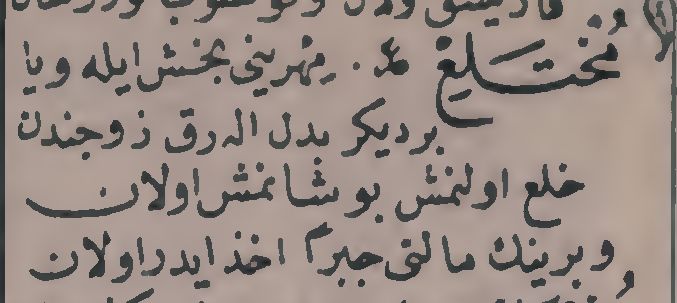 مُختَلِع ع. مهرینی بخش ایله ویا
بر دیکر بدل اله رق زوجندن
خلع اولنمش بوشانمش اولان
وبرینك مالنی جبراً اخذ ایدر اولان